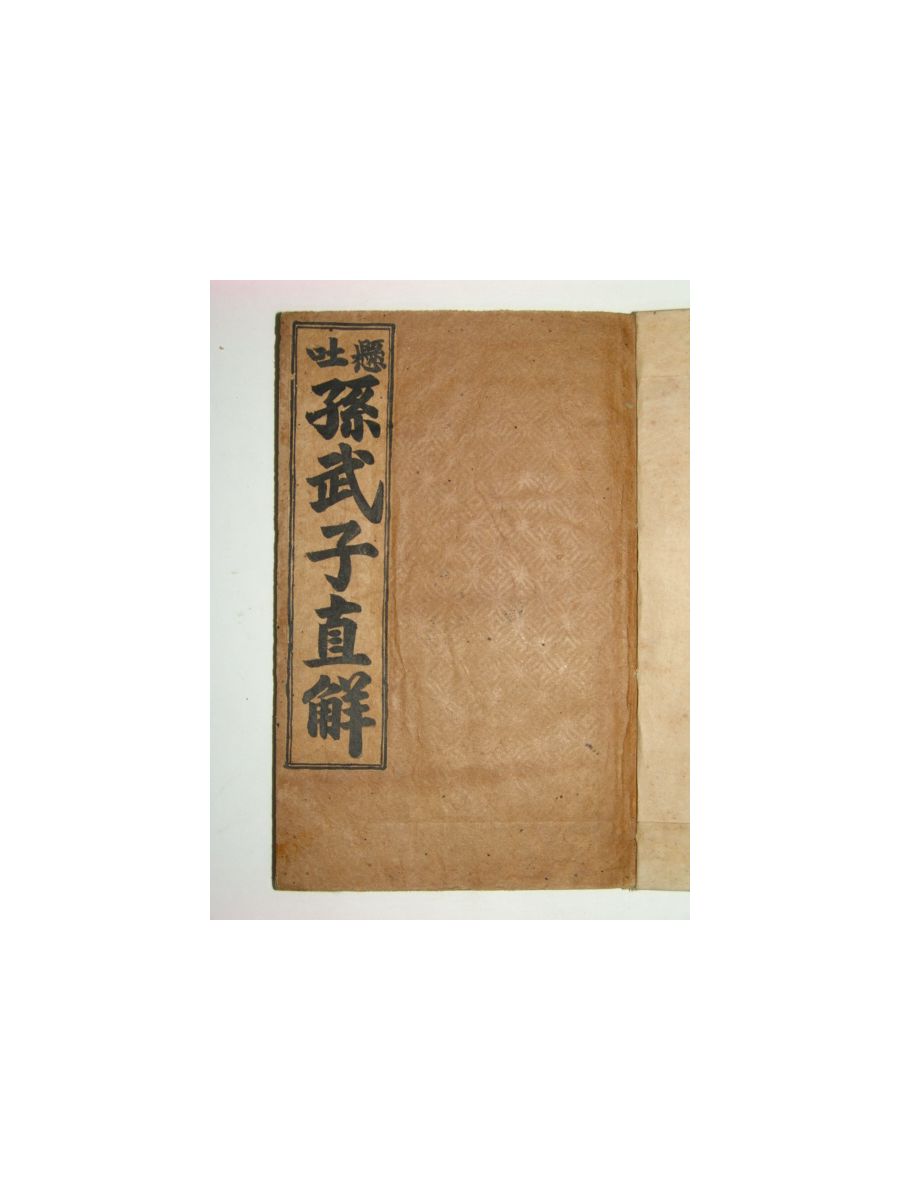 懸吐
孫武子直解